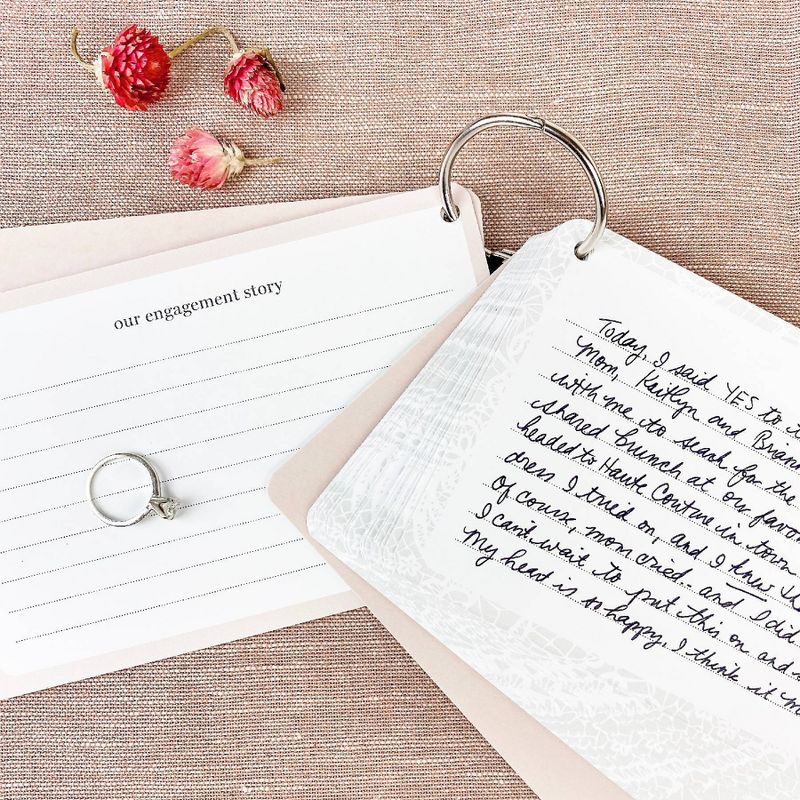 our engagement story
Today, I said YES to
Mom, Kaitlyn and
with me to search for the
shared brunch at our
headed to Haute Couture in town
dress I tried on, and I knew
Of course, mom cried.. and I did
I can't wait to put this on and
My heart is so happy. I think it